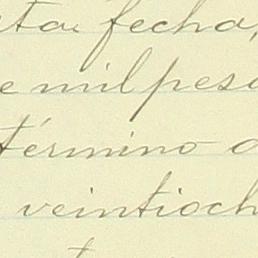 sta fecha,
e mil pes
término
veintioch